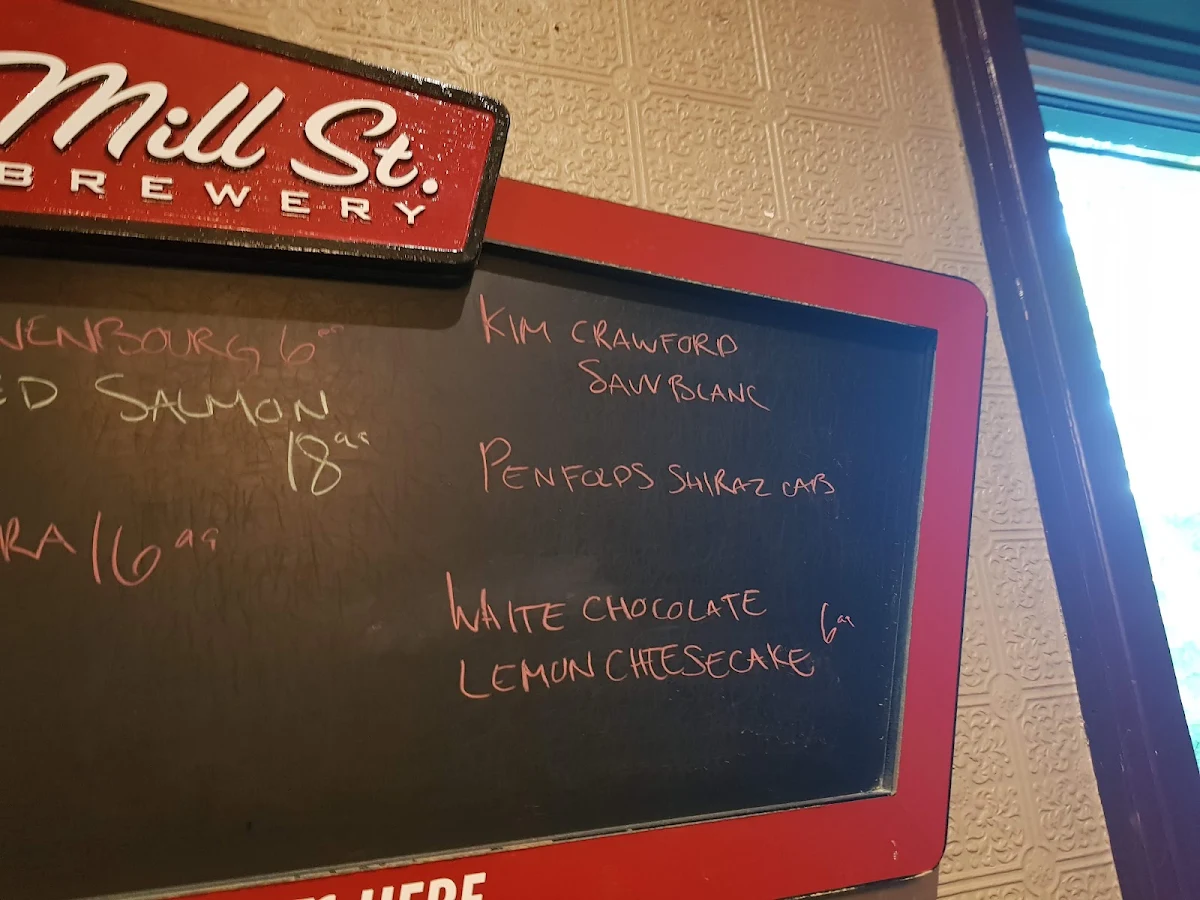 Mill St.
BREWERY
NENBOURG 6⁹⁹
ED SALMON
18⁹⁹
RA 16⁹⁹
KIM CRAWFORD
SAUV BLANC
PENFOLDS SHIRAZ CAB
WHITE CHOCOLATE
LEMON CHEESECAKE 6⁹⁹
HERE